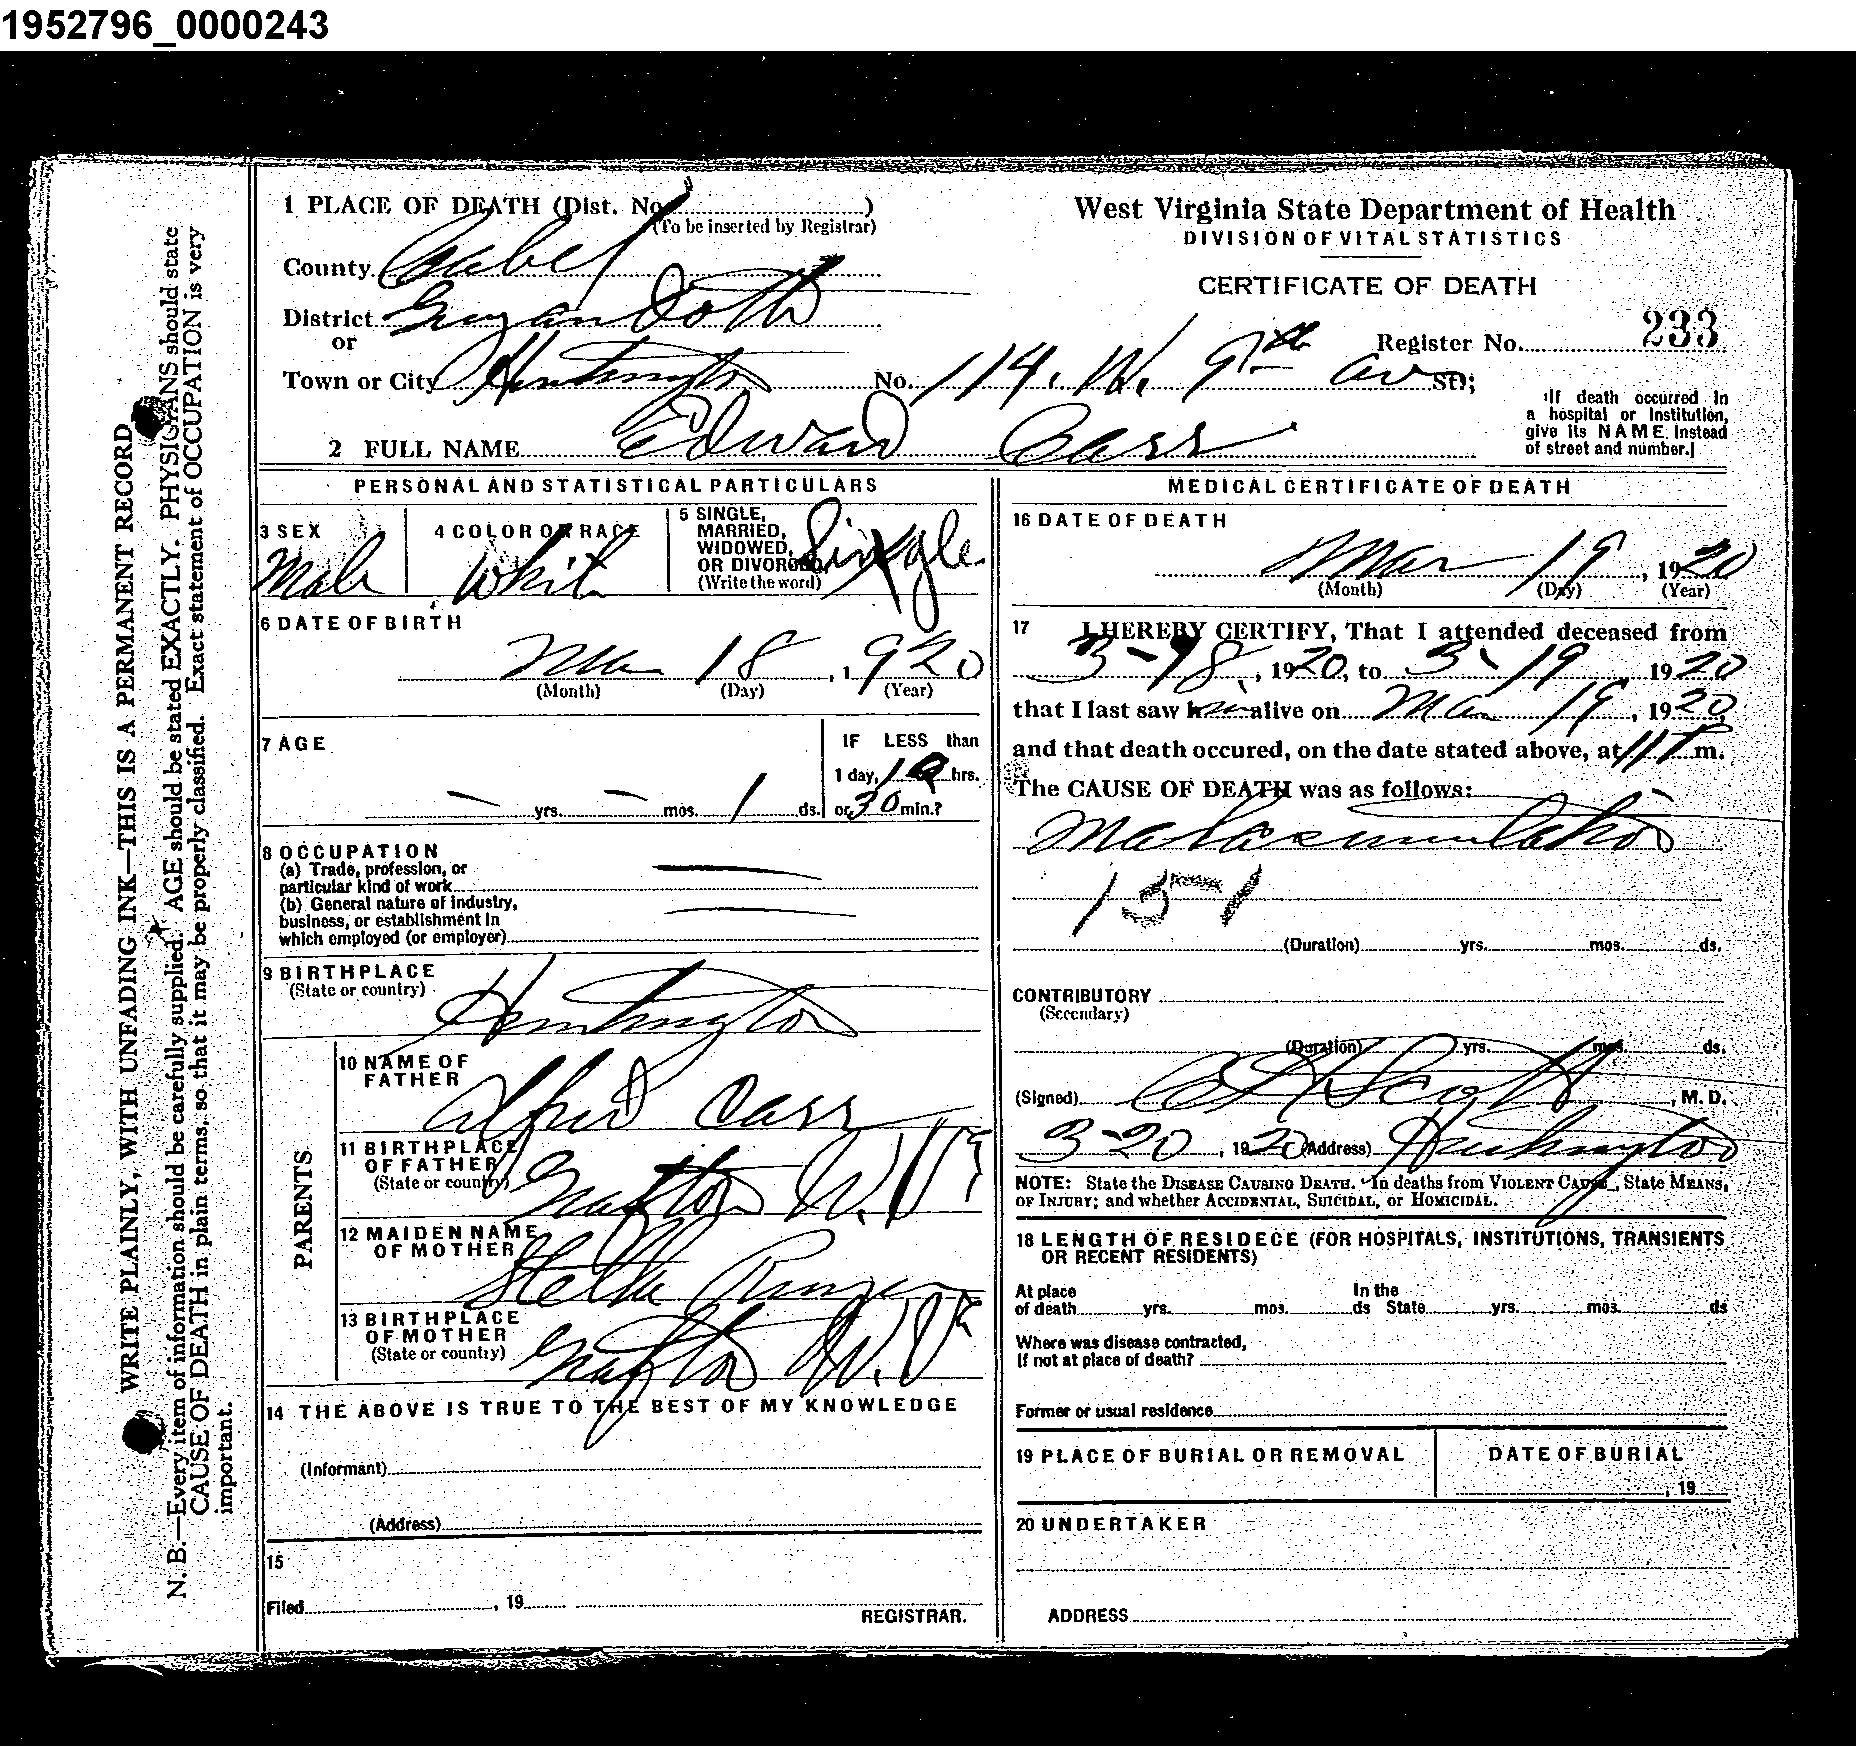 1952796_0000243
1 PLACE OF DEATH (Dist. No. )
(To be inserted by Registrar)
County Cabel
District Guyandotte
or
Town or City Huntington No. 114. W. 9th av St;
2 FULL NAME Edward Carr
West Virginia State Department of Health
DIVISION OF VITAL STATISTICS
CERTIFICATE OF DEATH
Register No. 233
If death occurred in
a hospital or Institution,
give its NAME instead
of street and number.]
WRITE PLAINLY, WITH UNFADING INK—THIS IS A PERMANENT RECORD
N. B.—Every item of information should be carefully supplied. AGE should be stated EXACTLY. PHYSICIANS should state
CAUSE OF DEATH in plain terms, so that it may be properly classified. Exact statement of OCCUPATION is very
important.
PERSONAL AND STATISTICAL PARTICULARS
3 SEX
Male
4 COLOR OR RACE
White
5 SINGLE,
MARRIED,
WIDOWED,
OR DIVORCED,
(Write the word)
Single
6 DATE OF BIRTH
Mar 18, 1920
(Month) (Day) (Year)
7 AGE
— yrs. — mos. 1 ds.
IF LESS than
1 day, hrs.
or 30 min.?
8 OCCUPATION
(a) Trade, profession, or
particular kind of work —
(b) General nature of Industry,
business, or establishment in
which employed (or employer) —
9 BIRTHPLACE
(State or country)
Huntington
PARENTS
10 NAME OF
FATHER
Alfred Carr
11 BIRTHPLACE
OF FATHER
(State or country)
Grafton W. Va
12 MAIDEN NAME
OF MOTHER
Stella
13 BIRTHPLACE
OF MOTHER
(State or country)
Grafton W. Va
14 THE ABOVE IS TRUE TO THE BEST OF MY KNOWLEDGE
(Informant)
(Address)
15
Filed , 19
REGISTRAR.
MEDICAL CERTIFICATE OF DEATH
16 DATE OF DEATH
Mar 19, 1920
(Month) (Day) (Year)
17 I HEREBY CERTIFY, That I attended deceased from
3-18, 1920, to 3-19 1920
that I last saw him alive on Mar 19, 1920,
and that death occured, on the date stated above, at 11 P m.
The CAUSE OF DEATH was as follows:
151
(Duration) yrs. mos. ds.
CONTRIBUTORY
(Secendary)
(Duration) yrs. mos. ds.
(Signed) Scott, M. D.
3-20, 1920 (Address) Huntington
NOTE: State the DISEASE CAUSING DEATH. In deaths from VIOLENT CAUSE, State MEANS,
OF INJURY; and whether ACCIDENTAL, SUICIDAL, or HOMICIDAL.
18 LENGTH OF RESIDECE (FOR HOSPITALS, INSTITUTIONS, TRANSIENTS
OR RECENT RESIDENTS)
At place In the
of death yrs. mos. ds State yrs. mos. ds
Where was disease contracted,
If not at place of death?
Former or usual residence
19 PLACE OF BURIAL OR REMOVAL
DATE OF BURIAL
, 19
20 UNDERTAKER
ADDRESS